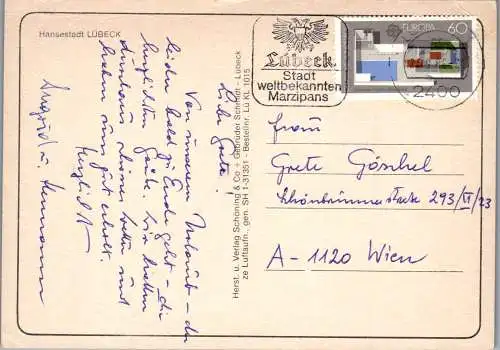 Hansestadt LÜBECK
Liebe Grete!
Von unserem Urlaub - der
leider bald zu Ende geht - die
herzlichsten Grüße. Wir hatten
durchaus schönes Wetter und
haben uns gut erholt.
Herzlichst
Ingrid u. Hermann
Herst. u. Verlag Schöning & Co + Gebrüder Schmidt - Lübeck
ze Luftaufn., gen. SH 1-31351 - Bestellnr. Lü KL 1015
Lübeck
Stadt
weltbekannten
Marzipans
EUROPA 60
2400
Frau
Grete Göschel
Schönbrunnerstraße 293/II/23
A-1120 Wien